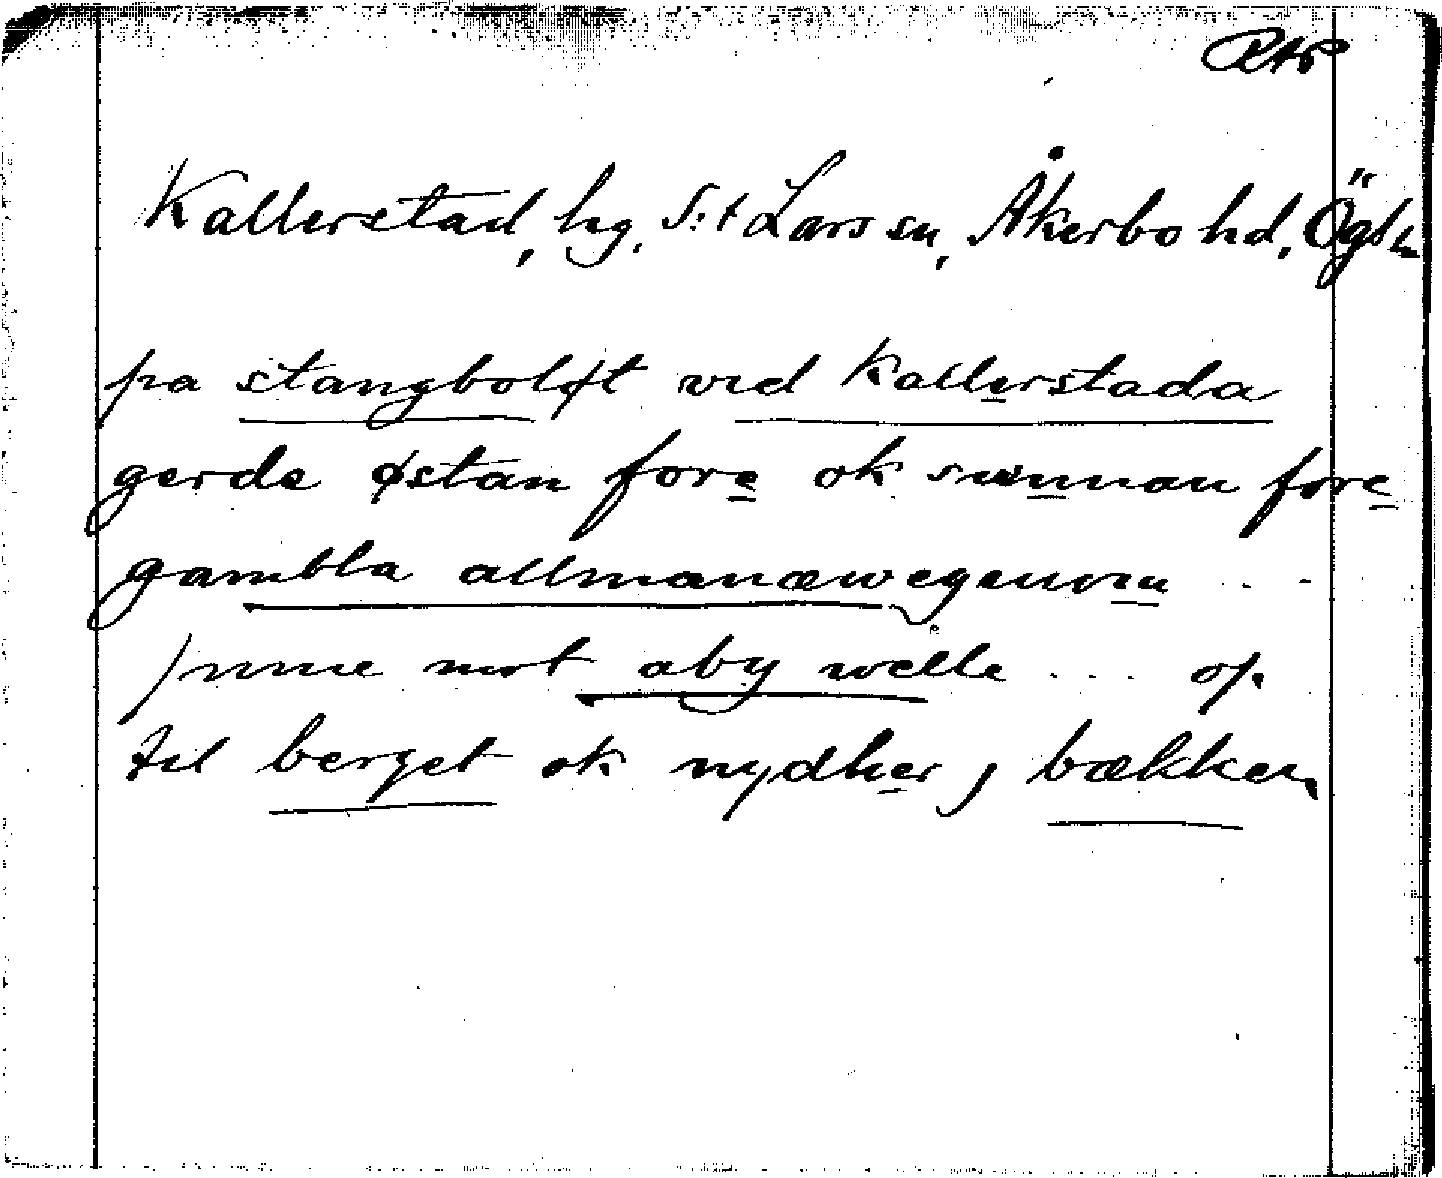 RAP
Kallerstad, hg, S:t Lars sn, Åkerbo hd, Ögtl
pa stangboløt ved Kallerstada
gerde østan fore ok sunnan fore
gambla allmanæwegenom . . -
jnne mot aby welle . . . . op
til berget ok nydher j bækken